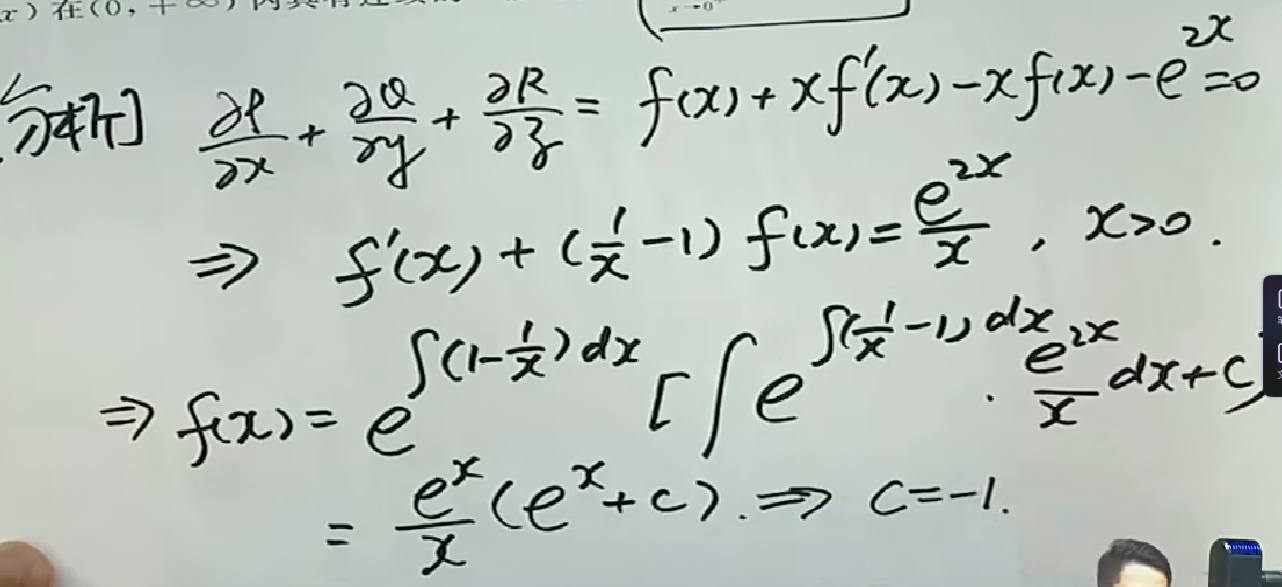 x）在(0, +∞)内具有连续的
x→0⁺
[分析] ∂P/∂x + ∂Q/∂y + ∂R/∂z = f(x) + xf'(x) - xf(x) - e^{2x} = 0
⇒ f'(x) + (1/x - 1) f(x) = e^{2x}/x , x>0.
⇒ f(x) = e^{∫(1-1/x)dx} [∫e^{∫(1/x-1)dx} · e^{2x}/x dx + C]
= e^x/x (e^x + C). ⇒ C = -1.